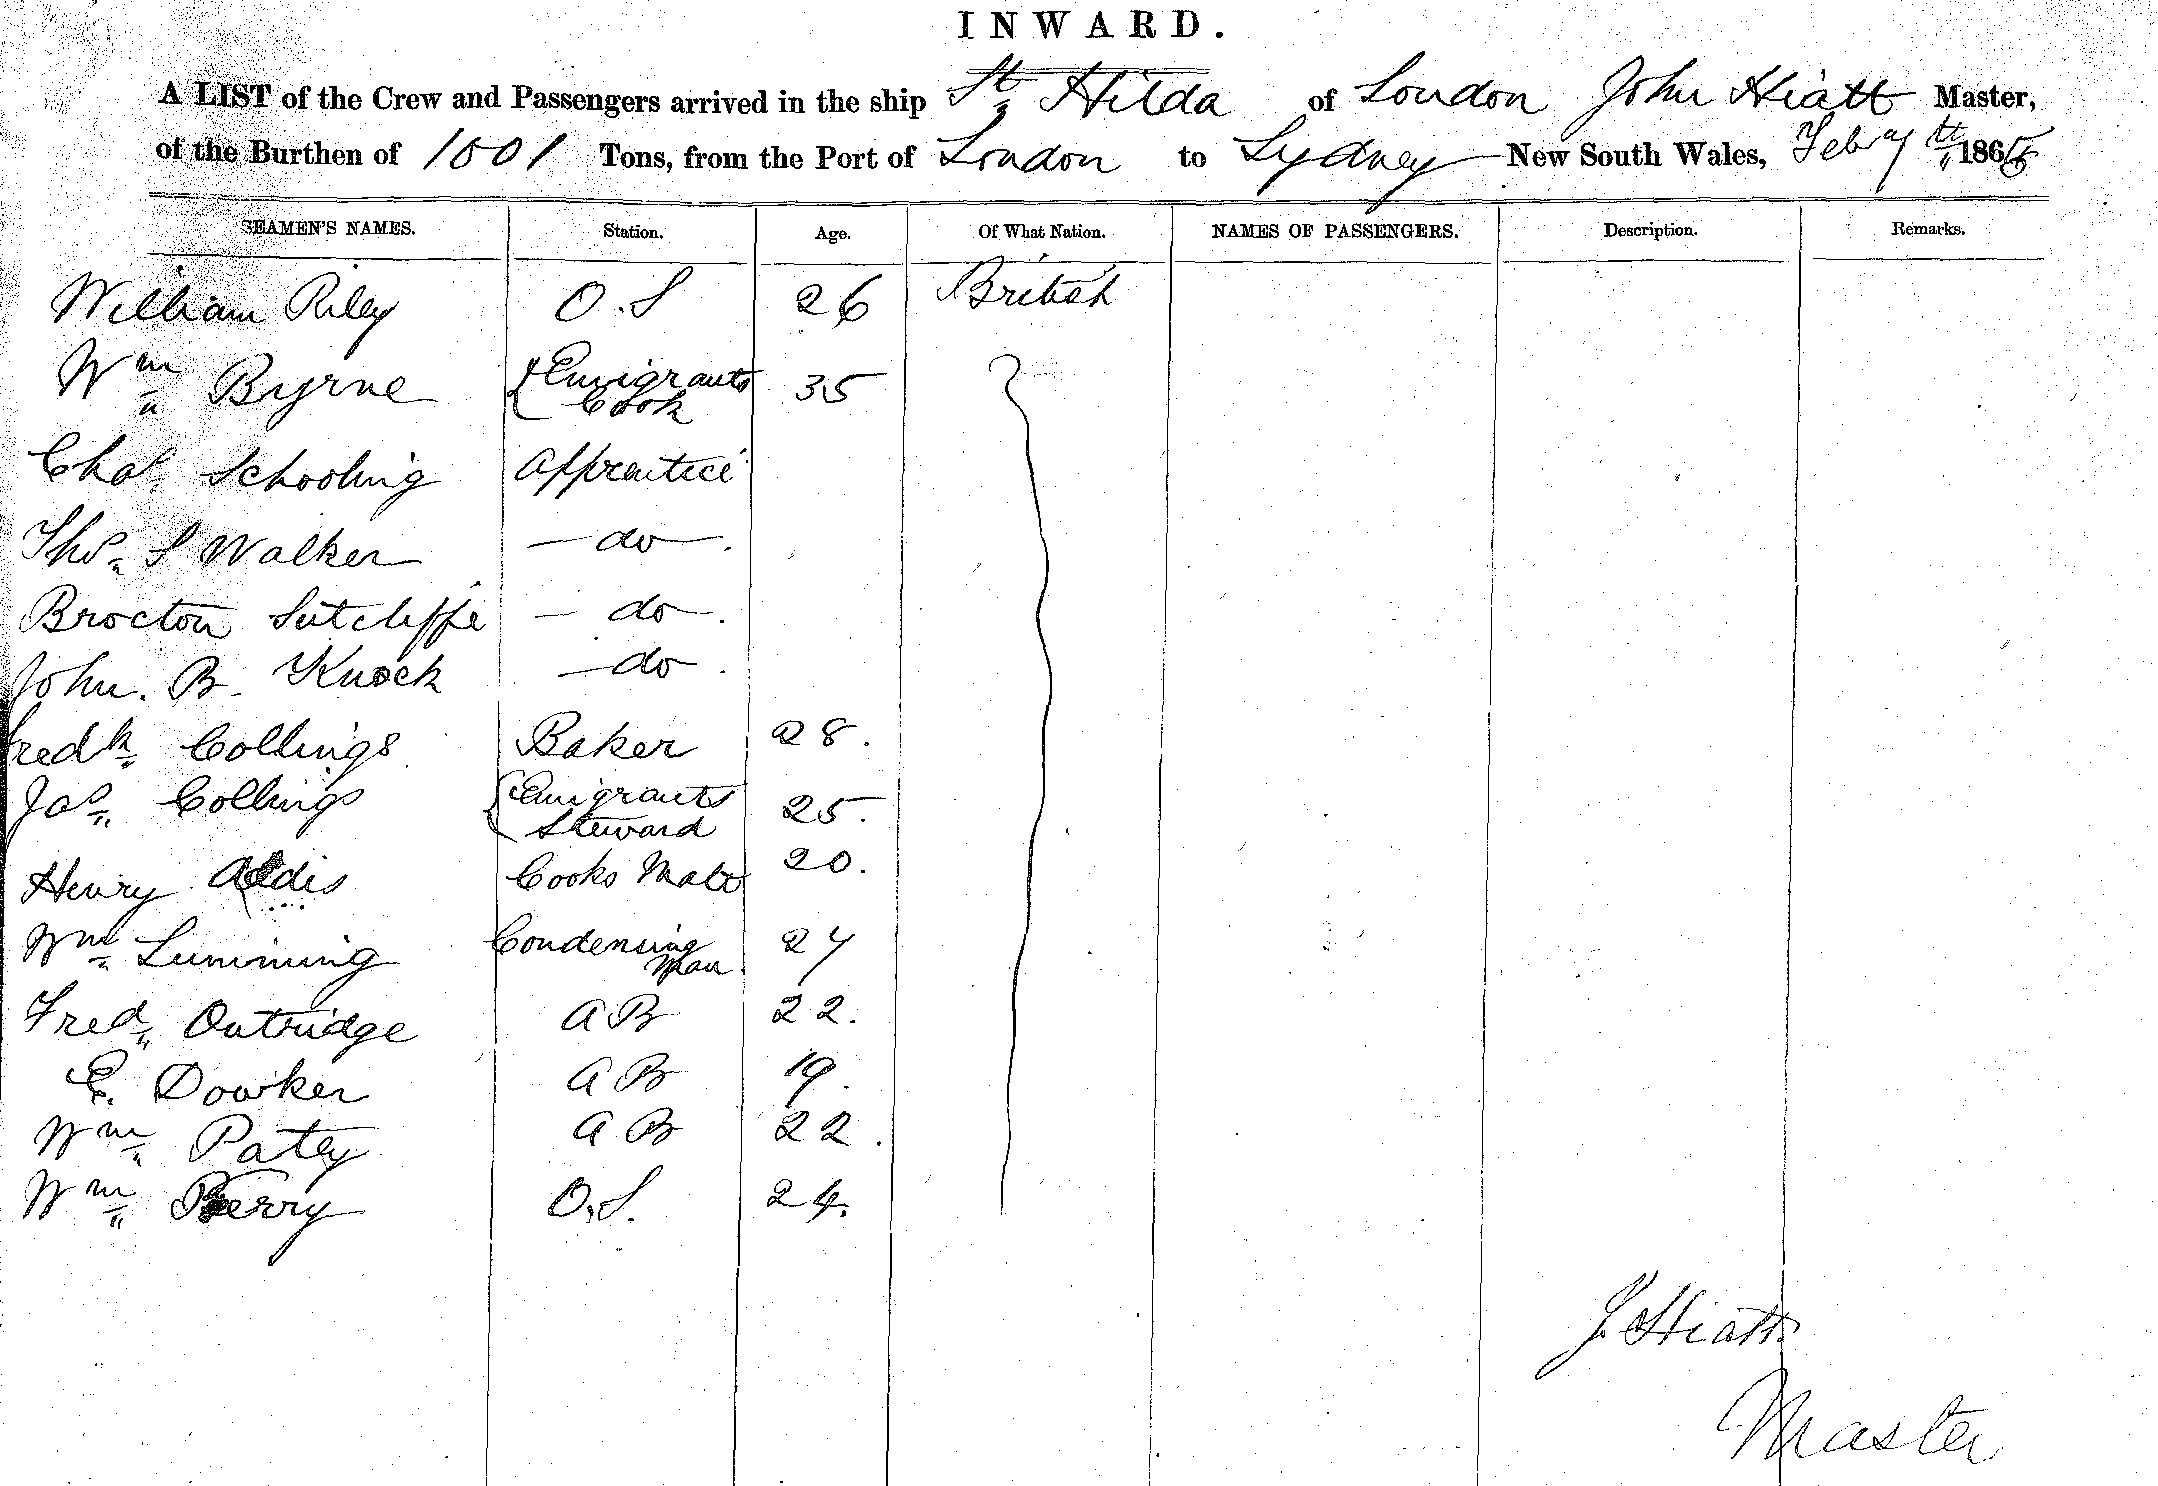 INWARD.
A LIST of the Crew and Passengers arrived in the ship St Hilda of London John Hiatt Master,
of the Burthen of 1001 Tons, from the Port of London to Sydney New South Wales, Feby th 186
SEAMEN'S NAMES. Station. Age. Of What Nation. NAMES OF PASSENGERS. Description. Remarks.
William Riley O.S 26 British
Wm Byrne Emigrants Cook 35
Chas Schooling Apprentice
Thos S Walker do
Brocton Sutcliffe do
John. B. Knock do
Fredk Collings Baker 28.
Jas Collings Emigrants Steward 25.
Henry Addis Cooks Mate 20.
Wm Lumming Condensing Man 24
Fred Outridge A B 22.
G. Dowker A B 19.
Wm Patey A B 22.
Wm Berry O.S. 24.
J. Hiatt
Master